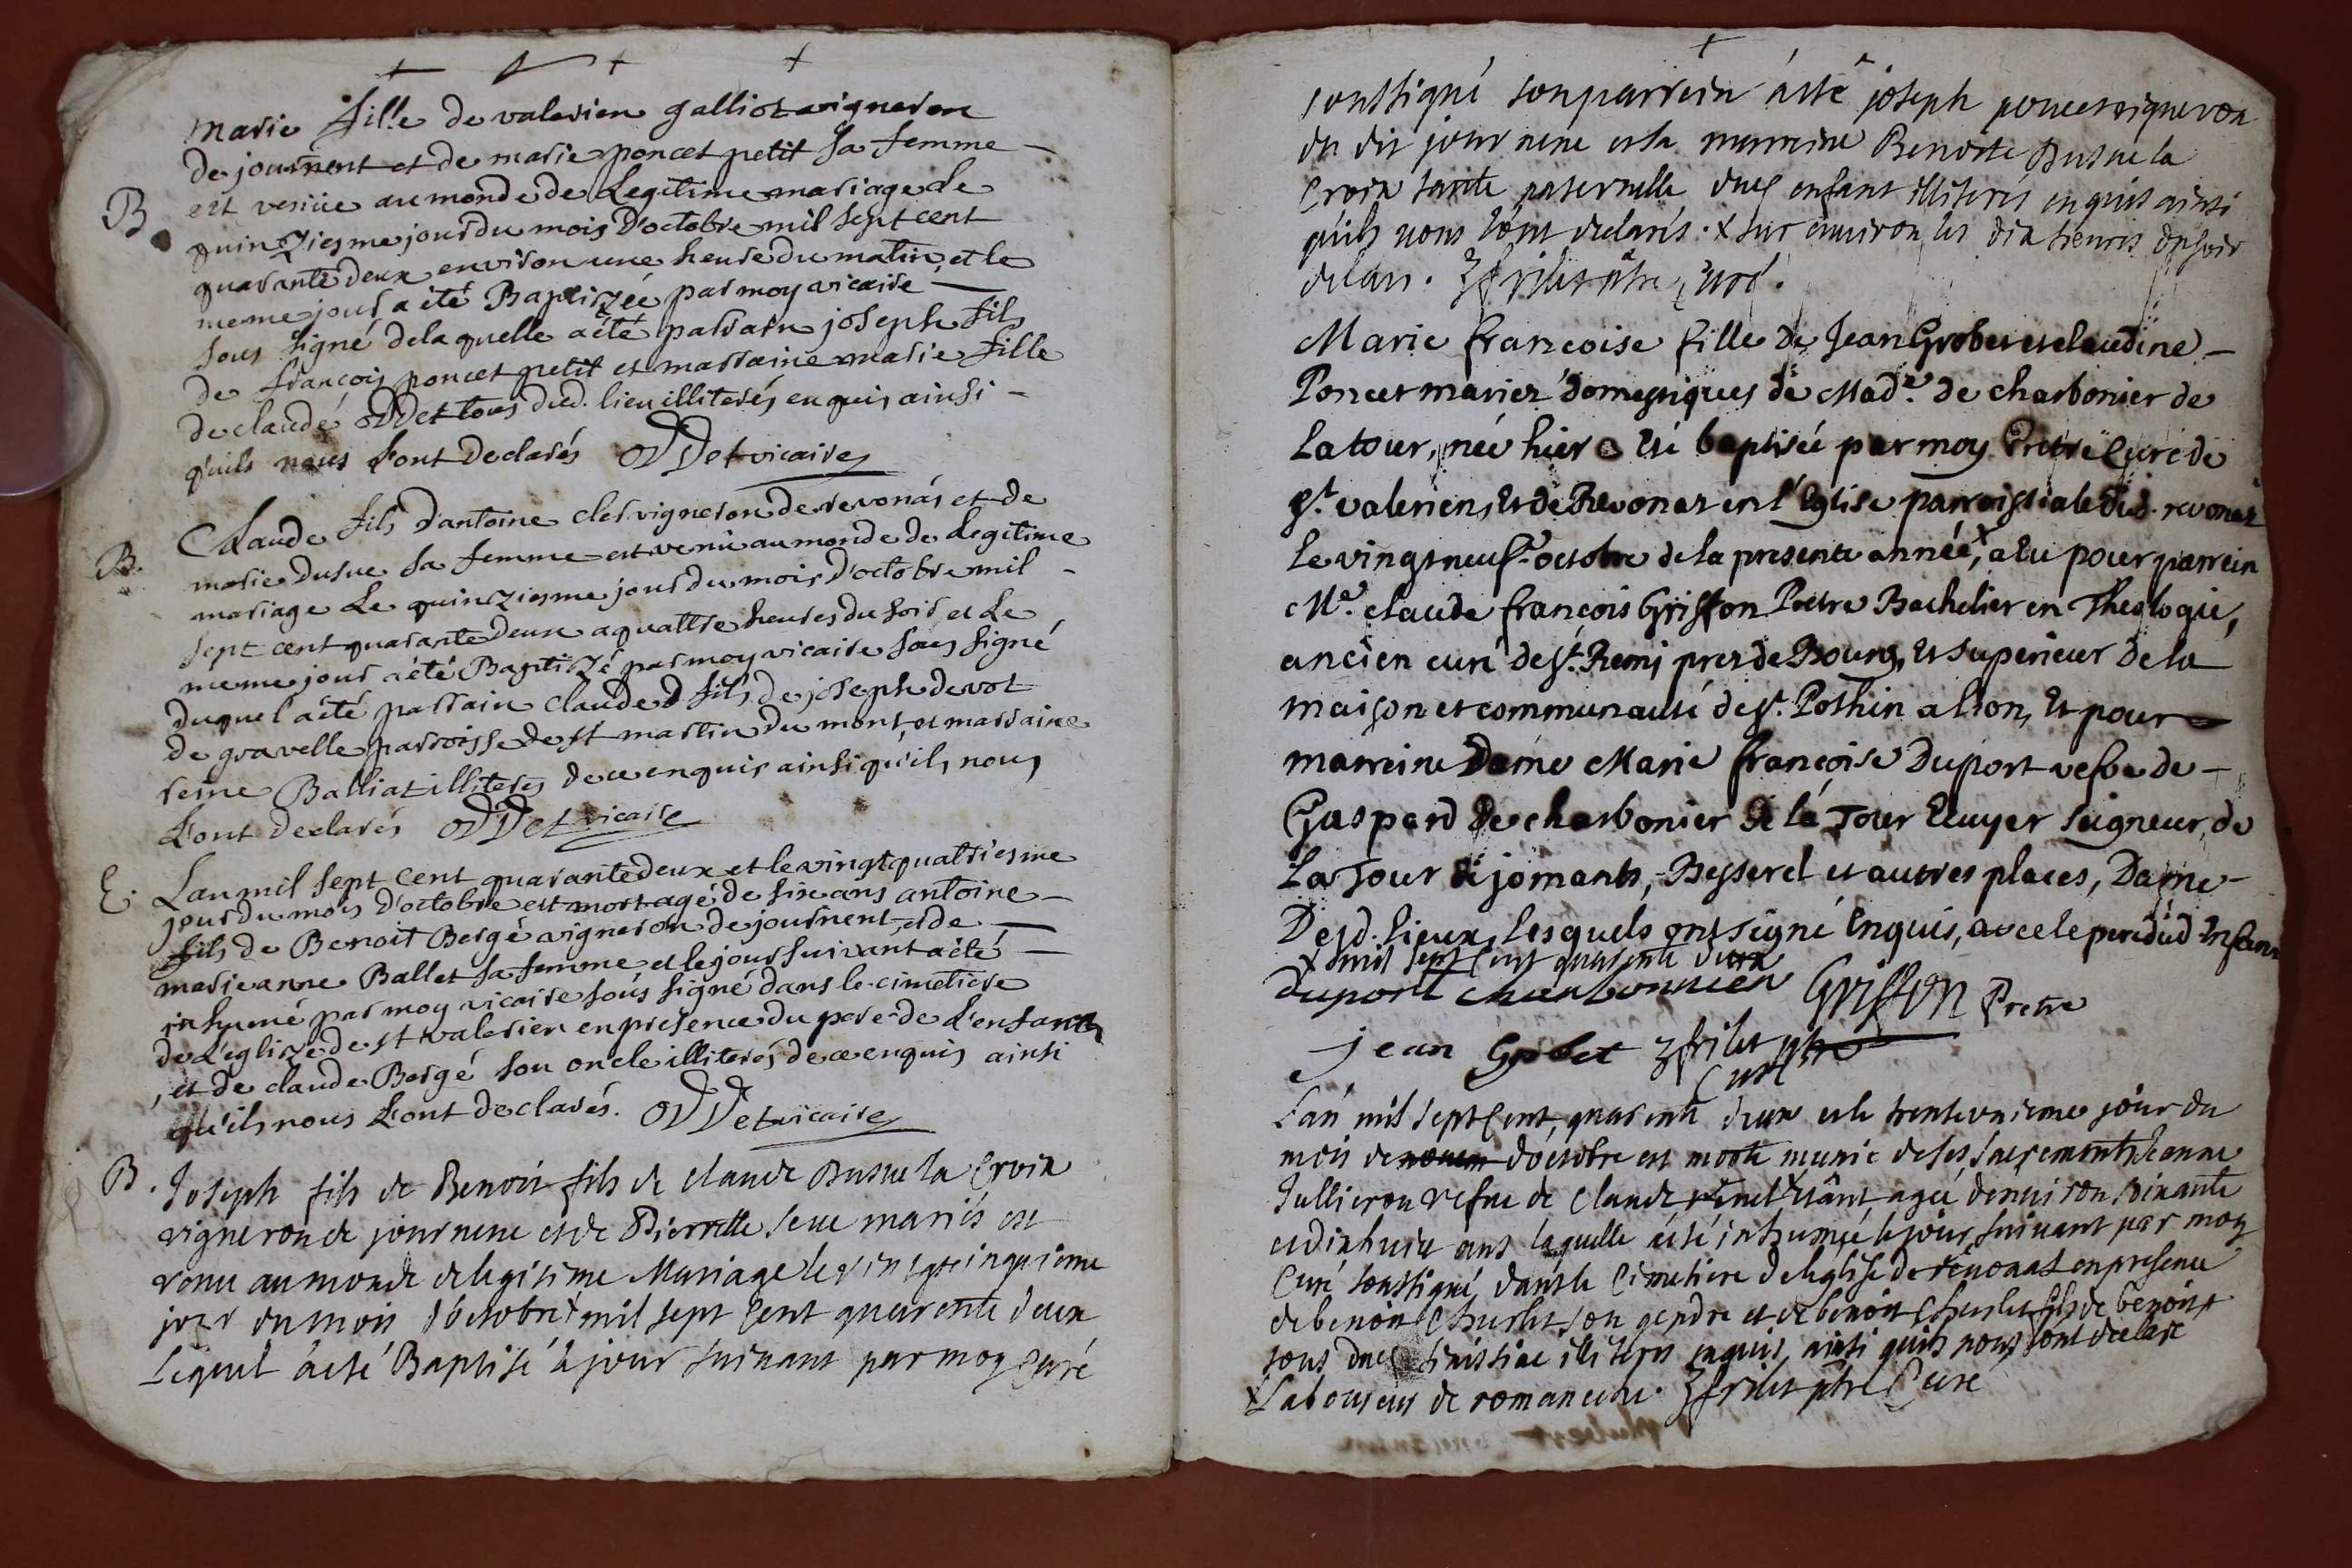 marie fille de valerien galliot vigneron
de journent et de marie poncet petit sa femme
B est venüe au monde de Legitime mariage le
quinziesme jour du mois d'octobre mil sept cent
quarante deux environ une heure du matin, et le
meme jour a été Baptizée par moy vicaire
sous signé de la quelle a été parrain joseph fils
de françois poncet petit et marraine marie fille
de claude oddet tous dud. lieu illiterés enquis ainsi
qu'ils nous L'ont declarés ODDet vicaire
B. Claude fils d'antoine clet vigneron de revonas et de
marie dusue sa femme est venu au monde de Legitime
mariage Le quinziesme jour du mois d'octobre mil
sept cent quarante deux a quattre heures du soir et Le
meme jour a été Baptizé par moy vicaire sous signé
duquel a été parrain claude fils de joseph devot
de gravelle parroisse de st martin du mont, et marraine
reine Balliat illiterés de ce enquis ainsi qu'ils nous
L'ont declarés ODDet vicaire
E. Lan mil sept cent quarante deux et le vingt quatriesme
jour du mois d'octobre est mort agé de six ans antoine
fils de Benoit Bergé vigneron de journent, et de
marieanne Ballet sa femme et le jour suivant a été
inhumé par moy vicaire sous signé dans le cimetiere
de L'eglize de st valerien en presence du pere de L'enfant
, et de claude Bergé son oncle illiterés de ce enquis ainsi
qu'ils nous L'ont declarés. ODDet vicaire
B. Joseph fils de Benoit fils de Claude Dusue la Croix
vigneron de journent et de Pierrette seve mariés est
venu au monde de legitime Mariage le vingt cinquieme
jour du mois d'octobre mil sept cent quarente deux
Lequel a esté Baptisé le jour suivant par moy Curé
soussigné son parrein a esté joseph poncet vigneron
du dit journent et la marreine Benoite Dusue la
Croix tante paternelle dud enfant illiterés enquis ainsi
quils nous l'ont declarés. x sur environ les dix heures du soir
frilet ptre Curé.
Marie françoise fille de Jean Grobet et claudine
Poncet mariez domestiques de Made. de charbonier de
La tour, née hier a esté baptisée par moy Pretre Curé de
St. valerien, et de Revonas en l'Eglise parroissiale dud. revonas
Le vingt neufe. octobre de la presente année, x a eu pour parrein
Me. claude françois Griffon Prêtre Bachelier en Theologie,
ancien curé de St. Remj pres de Bourg, et superieur de la
maison et communauté de St. Pothin a Lion, et pour
marreine Dame Marie françoise Duport vefve de
Gaspard de charbonier de la Tour Ecuyer seigneur de
La Tour de jomants, Beyserel et autres places, Dame
Desd. Lieux, lesquels ont signé Enquis, avec le pere dud Enfant
x mil sept Cent quarente deux
duport charbonnier Griffon Pretre
jean Grobet frilet ptre
Curé
L'an mil sept Cent, quarente deux et le trente unieme jour du
mois de novem d'octobre est morte munie de ses sacrements Jeanne
Jullieron vefve de Claude x vivant, agée d'environ soixante
et dix huit ans laquelle a esté inhumée le jour suivant par moy
Curé soussigné dans le Cimetiere de l'eglise de revonas en presence
de benoit Churlet son gendre et de benoit Churlet fils de benoist
tous illiterés enquis ainsi quils nous l'ont declaré
x Laboureur de romaneche. frilet ptre Curé